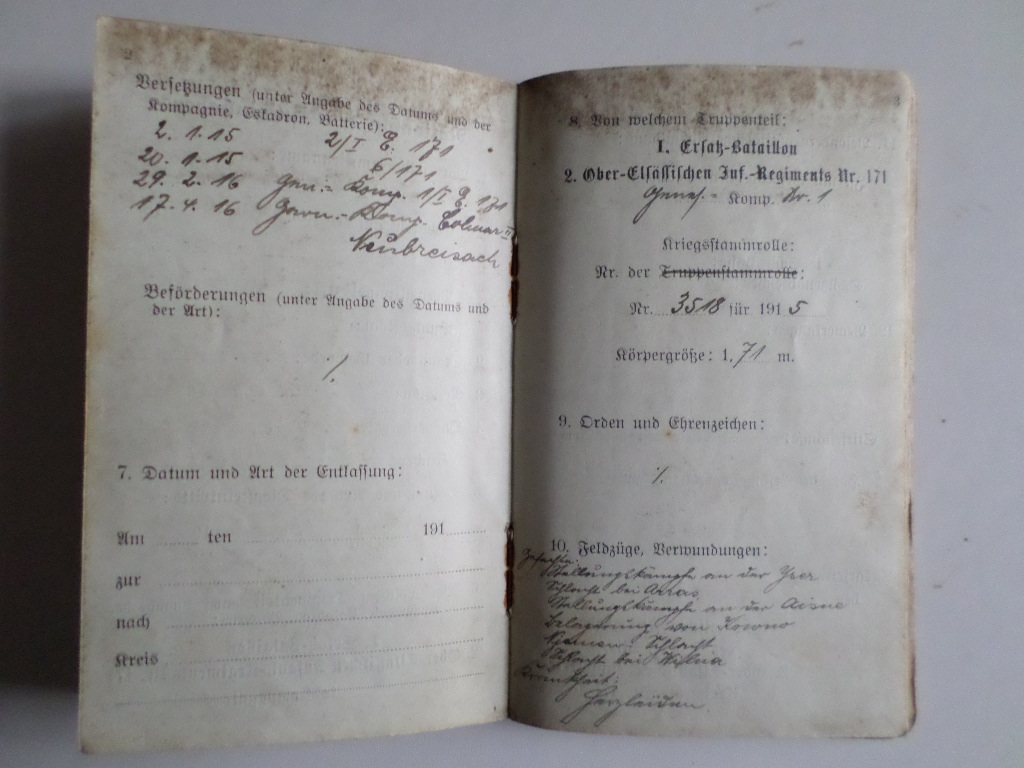 2
Versetzungen (unter Angabe des Datums und der
Kompagnie, Eskadron, Batterie):
2. 1. 15 2/I E. 171
20. 1. 15 6/171
29. 2. 16 Gen.= Komp. 1/I E. 171
17. 4. 16 Garn.- Komp. Colmar II
Neubreisach
Beförderungen (unter Angabe des Datums und
der Art):
·/.
7. Datum und Art der Entlassung:
Am ten 191
zur
nach
Kreis
3
8. Von welchem Truppenteil:
I. Ersatz-Bataillon
2. Ober-Elsässischen Inf.-Regiments Nr. 171
Genes.- Komp. Nr. 1
Kriegsstammrolle:
Nr. der Truppenstammrolle:
Nr. 3518 für 1915
Körpergröße: 1,71 m.
9. Orden und Ehrenzeichen:
·/.
10. Feldzüge, Verwundungen:
Gefechte:
Stellungskämpfe an der Yser
Schlacht bei Arras
Stellungskämpfe an der Aisne
Belagerung von Kowno
Njemen: Schlacht
Schlacht bei Wilna
Krankheit:
Herzleiden